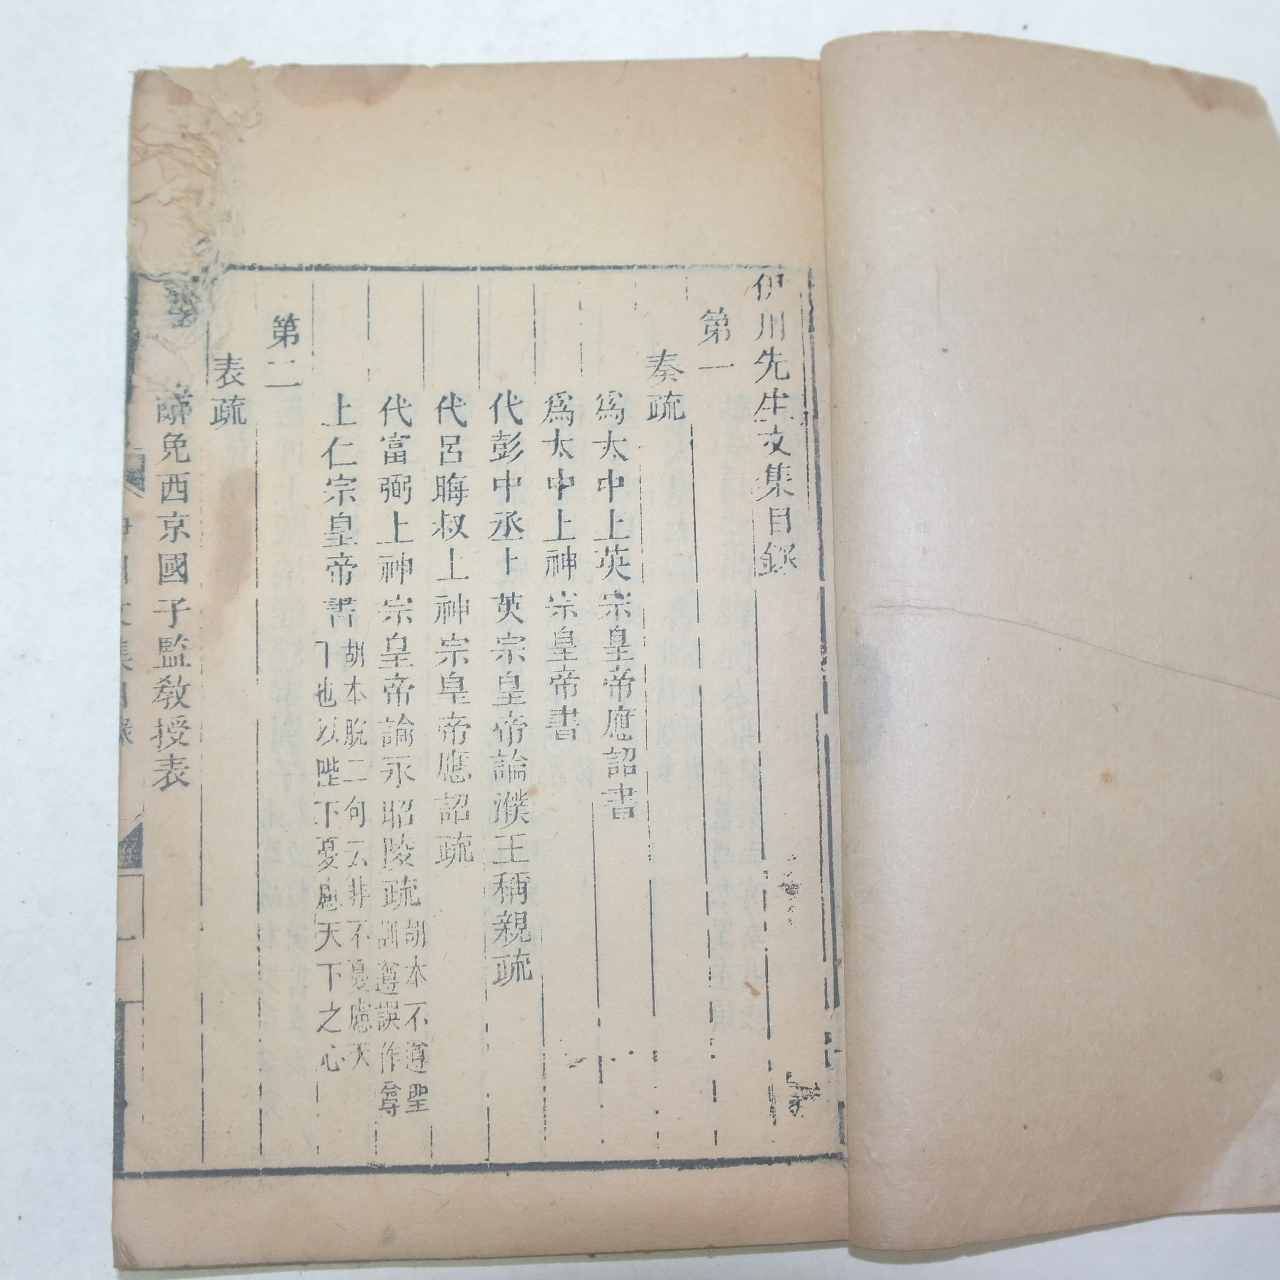 伊川先生文集目錄
第一
奏疏
爲太中上英宗皇帝應詔書
爲太中上神宗皇帝書
代彭中丞上英宗皇帝論濮王稱親疏
代呂晦叔上神宗皇帝應詔疏
代富弼上神宗皇帝論永昭陵疏
胡本不遵聖
訓遵誤作尊
上仁宗皇帝書
胡本脫二句云非不憂慮天
下也以陛下憂慮天下之心
第二
表疏
辭免西京國子監敎授表
伊川文集目錄
一